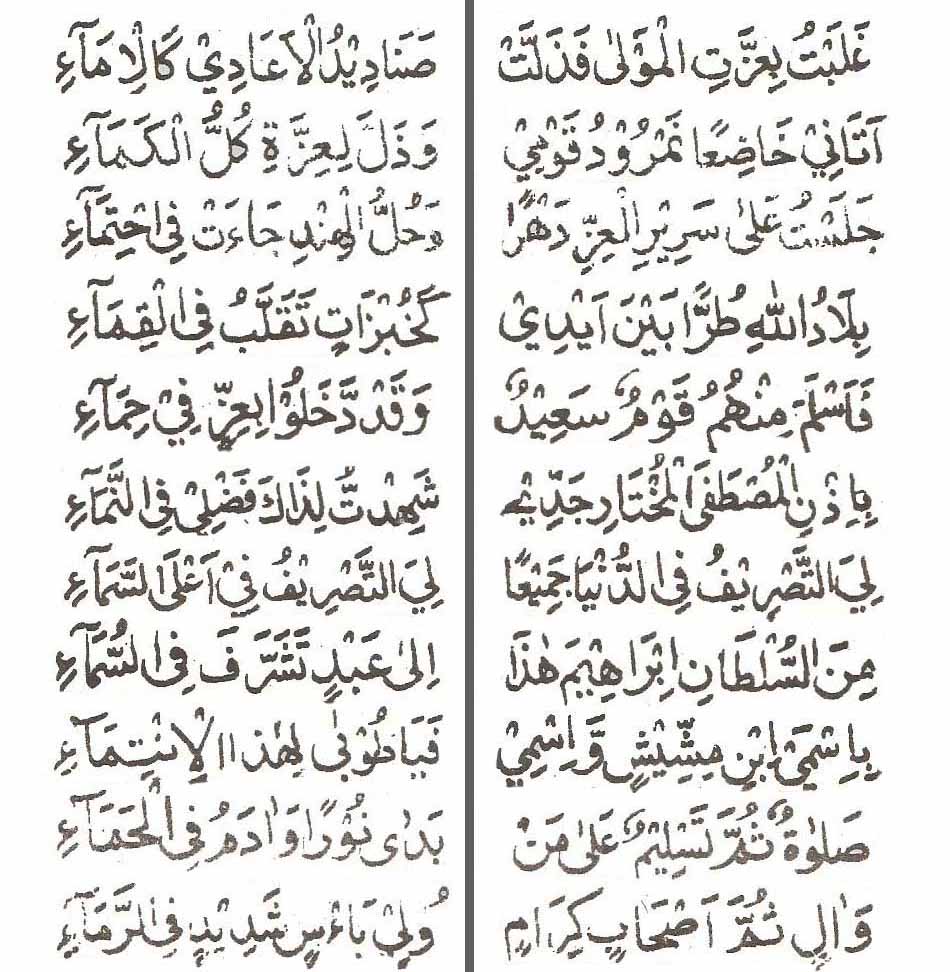 غَلَبْتُ بِعِزَّتِ الْمَوْلٰی فَذَلَّتْ صَنَادِيْدُ الْاَعَادِيْ كَالْاِمَآءِ
اَتَانِيْ خَاضِعًا نَمْرُوْدُ قَوْمِيْ وَذَلَّ لِعِزَّةِ كُلُّ الْكَمَآءِ
جَلَسْتُ عَلٰی سَرِيْرِ الْعِزِّ دَهْرًا وَحُلُّ الْهِنْدِ جَاءَتْ فِی احْتِمَآءِ
بِلَادُ اللّٰهِ طُرًّا بَيْنَ اَيْدِيْ كَخُبْزَاتٍ تَقَلَّبُ فِی الْقِمَآءِ
فَاَسْلَمَ مِنْهُمُ قَوْمٌ سَعِيْدٌ وَقَدْ دَّخَلُوْا بِعِزٍّ فِيْ حِمَآءِ
بِاِذْنِ الْمُصْطَفَی الْمُخْتَارِ جَدِّيْ شَهِدْتُّ لِذَاكَ فَضْلِيْ فِی النَّمَآءِ
لِيَ التَّصْرِيْفُ فِی الدُّنْيَا جَمِيْعًا لِيَ التَّصْرِيْفُ فِيْ اَعْلَی السَّمَآءِ
مِنَ السُّلْطَانِ اِبْرَاهِيْمَ هٰذَا اِلٰی عَبْدٍ تَشَرَّفَ فِی السُّمَّآءِ
بِاِسْمَیِ ابْنِ مِشِّيْشٍ وَّاِسْمِيْ فَيَا طُوْبٰی لِهٰذَا الْاِنْتِمَآءِ
صَلٰوةٌ ثُمَّ تَسْلِيْمٌ عَلٰی مَنْ بَدٰی نُوْرًا وَاٰدَمُ فِی الْحَمَآءِ
وَاٰلٍ ثُمَّ اَصْحَابٍ كِرَامٍ وُلِيْ بَاْءْسٍ شَدِيْدٍ فِی الرَّمَآءِ